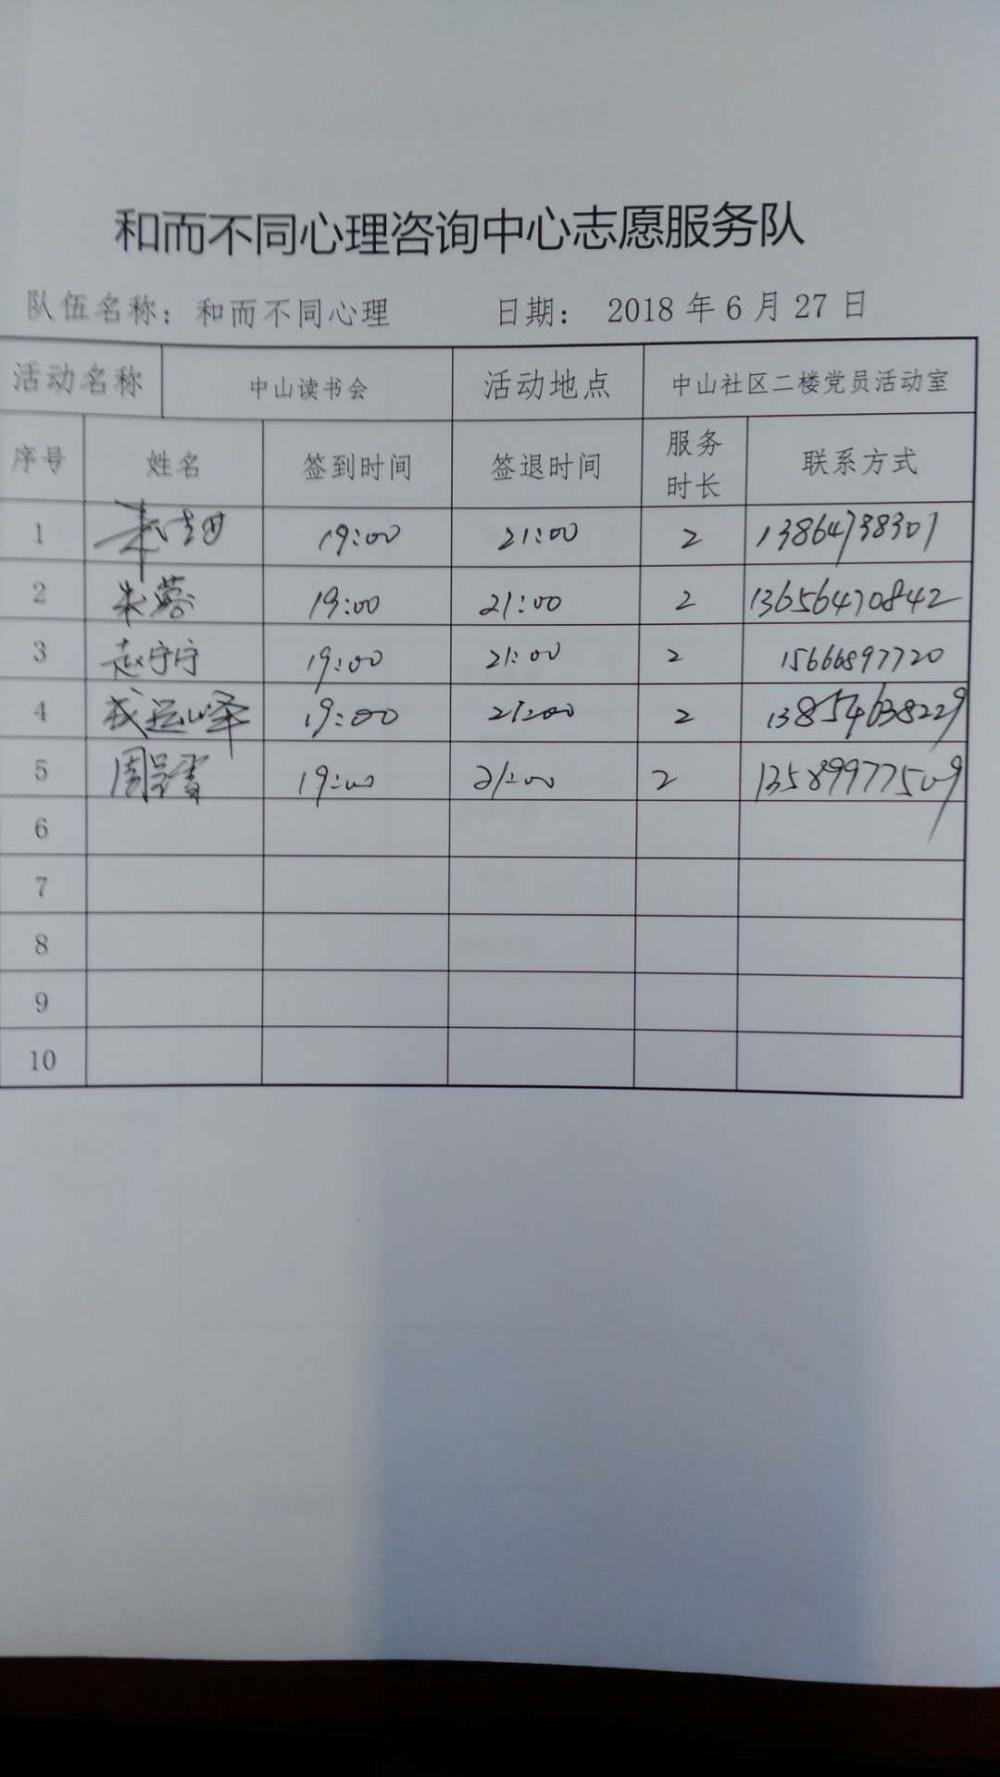 和而不同心理咨询中心志愿服务队
队伍名称：和而不同心理 日期： 2018 年 6 月 27 日
活动名称 中山读书会 活动地点 中山社区二楼党员活动室
序号 姓名 签到时间 签退时间 服务时长 联系方式
1 19:00 21:00 2 13864738301
2 朱蓉 19:00 21:00 2 13656470842
3 赵宁宁 19:00 21:00 2 15666897720
4 19:00 21:00 2 13854638229
5 19:00 21:00 2 13589977509
6
7
8
9
10